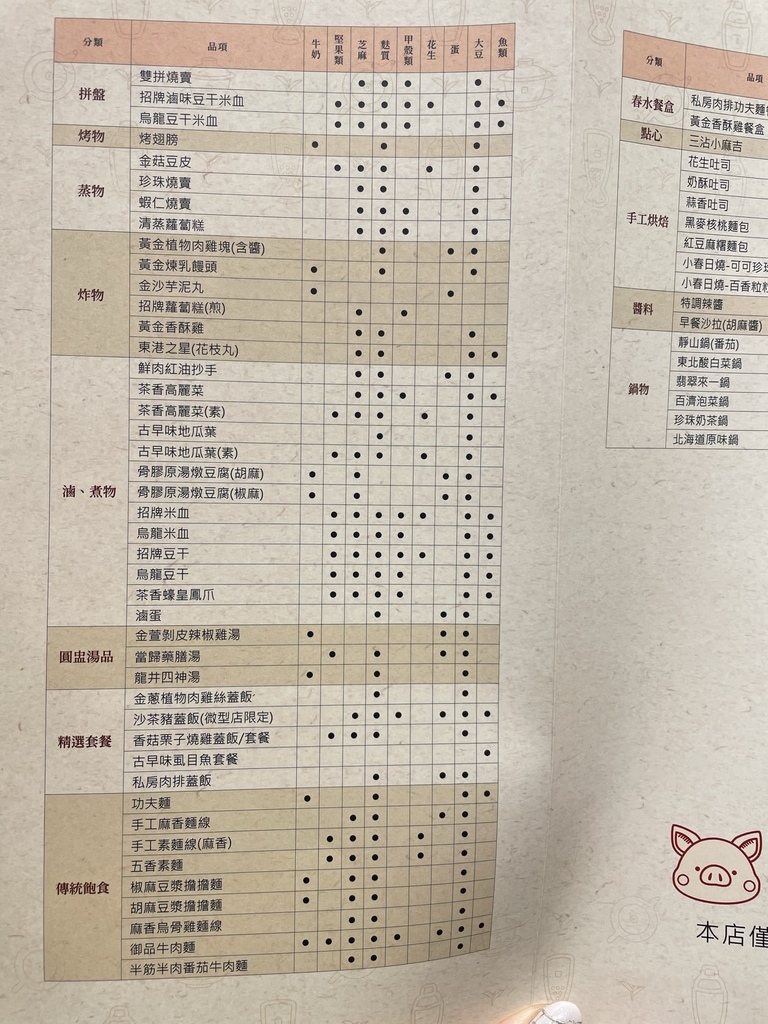 分類 品項 牛奶 堅果類 芝麻 麩質 甲殼類 花生 蛋 大豆 魚類
拼盤
雙拼燒賣 ● ● ● ●
招牌滷味豆干米血 ● ● ● ● ● ● ●
烏龍豆干米血 ● ● ● ● ● ●
烤物
烤翅膀 ● ● ●
蒸物
金菇豆皮 ● ● ● ● ●
珍珠燒賣 ● ● ●
蝦仁燒賣 ● ● ● ●
清蒸蘿蔔糕 ● ● ● ●
炸物
黃金植物肉雞塊(含醬) ● ● ●
黃金煉乳饅頭 ● ● ●
金沙芋泥丸 ● ●
招牌蘿蔔糕(煎) ● ●
黃金香酥雞 ● ● ●
東港之星(花枝丸) ● ● ● ●
滷、煮物
鮮肉紅油抄手 ● ● ● ●
茶香高麗菜 ● ● ● ● ●
茶香高麗菜(素) ● ● ● ● ●
古早味地瓜葉 ● ●
古早味地瓜葉(素) ● ● ● ● ●
骨膠原湯燉豆腐(胡麻) ● ● ● ●
骨膠原湯燉豆腐(椒麻) ● ● ● ●
招牌米血 ● ● ● ● ● ● ●
烏龍米血 ● ● ● ● ● ●
招牌豆干 ● ● ● ● ● ● ●
烏龍豆干 ● ● ● ● ● ●
茶香蠔皇鳳爪 ● ● ● ● ● ●
滷蛋 ● ● ●
圓盅湯品
金萱剝皮辣椒雞湯 ● ● ●
當歸藥膳湯 ● ● ● ●
龍井四神湯 ● ● ●
精選套餐
金蔥植物肉雞絲蓋飯 ● ●
沙茶豬蓋飯(微型店限定) ● ● ● ● ● ●
香菇栗子燒雞蓋飯/套餐 ● ● ● ●
古早味虱目魚套餐 ●
私房肉排蓋飯 ● ● ●
傳統飽食
功夫麵 ● ● ● ●
手工麻香麵線 ● ● ● ●
手工素麵線(麻香) ● ● ● ● ●
五香素麵 ● ● ● ● ●
椒麻豆漿擔擔麵 ● ● ● ●
胡麻豆漿擔擔麵 ● ● ● ●
麻香烏骨雞麵線 ● ● ●
御品牛肉麵 ● ● ● ● ● ● ● ●
半筋半肉番茄牛肉麵 ● ● ●
分類 品項
春水餐盒
私房肉排功夫麵
黃金香酥雞餐盒
點心
三沾小麻吉
手工烘焙
花生吐司
奶酥吐司
蒜香吐司
黑麥核桃麵包
紅豆麻糬麵包
小春日燒-可可珍珠
小春日燒-百香粒粒
醬料
特調辣醬
早餐沙拉(胡麻醬)
鍋物
靜山鍋(番茄)
東北酸白菜鍋
翡翠來一鍋
百濟泡菜鍋
珍珠奶茶鍋
北海道原味鍋
本店僅